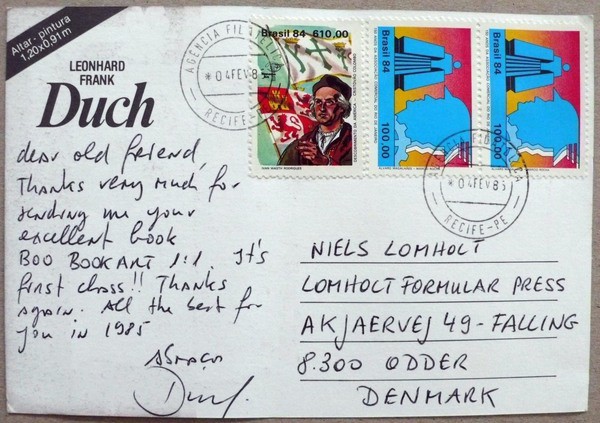 Altar - pintura
1,20x0,91m
LEONHARD
FRANK
Duch
dear old friend,
Thanks very much for
sending me your
excellent book
BOO BOOK ART 1:1. It's
first class!! Thanks
again. All the best for
you in 1985
Abraços
Duch.
Brasil 84 610,00
Brasil 84
100,00
Brasil 84
100,00
AGÊNCIA FILATÉLICA
*04FEV85
RECIFE-PE
*04FEV85
RECIFE-PE
NIELS LOMHOLT
LOMHOLT FORMULAR PRESS
AKJAERVEJ 49-FALLING
8.300 ODDER
DENMARK